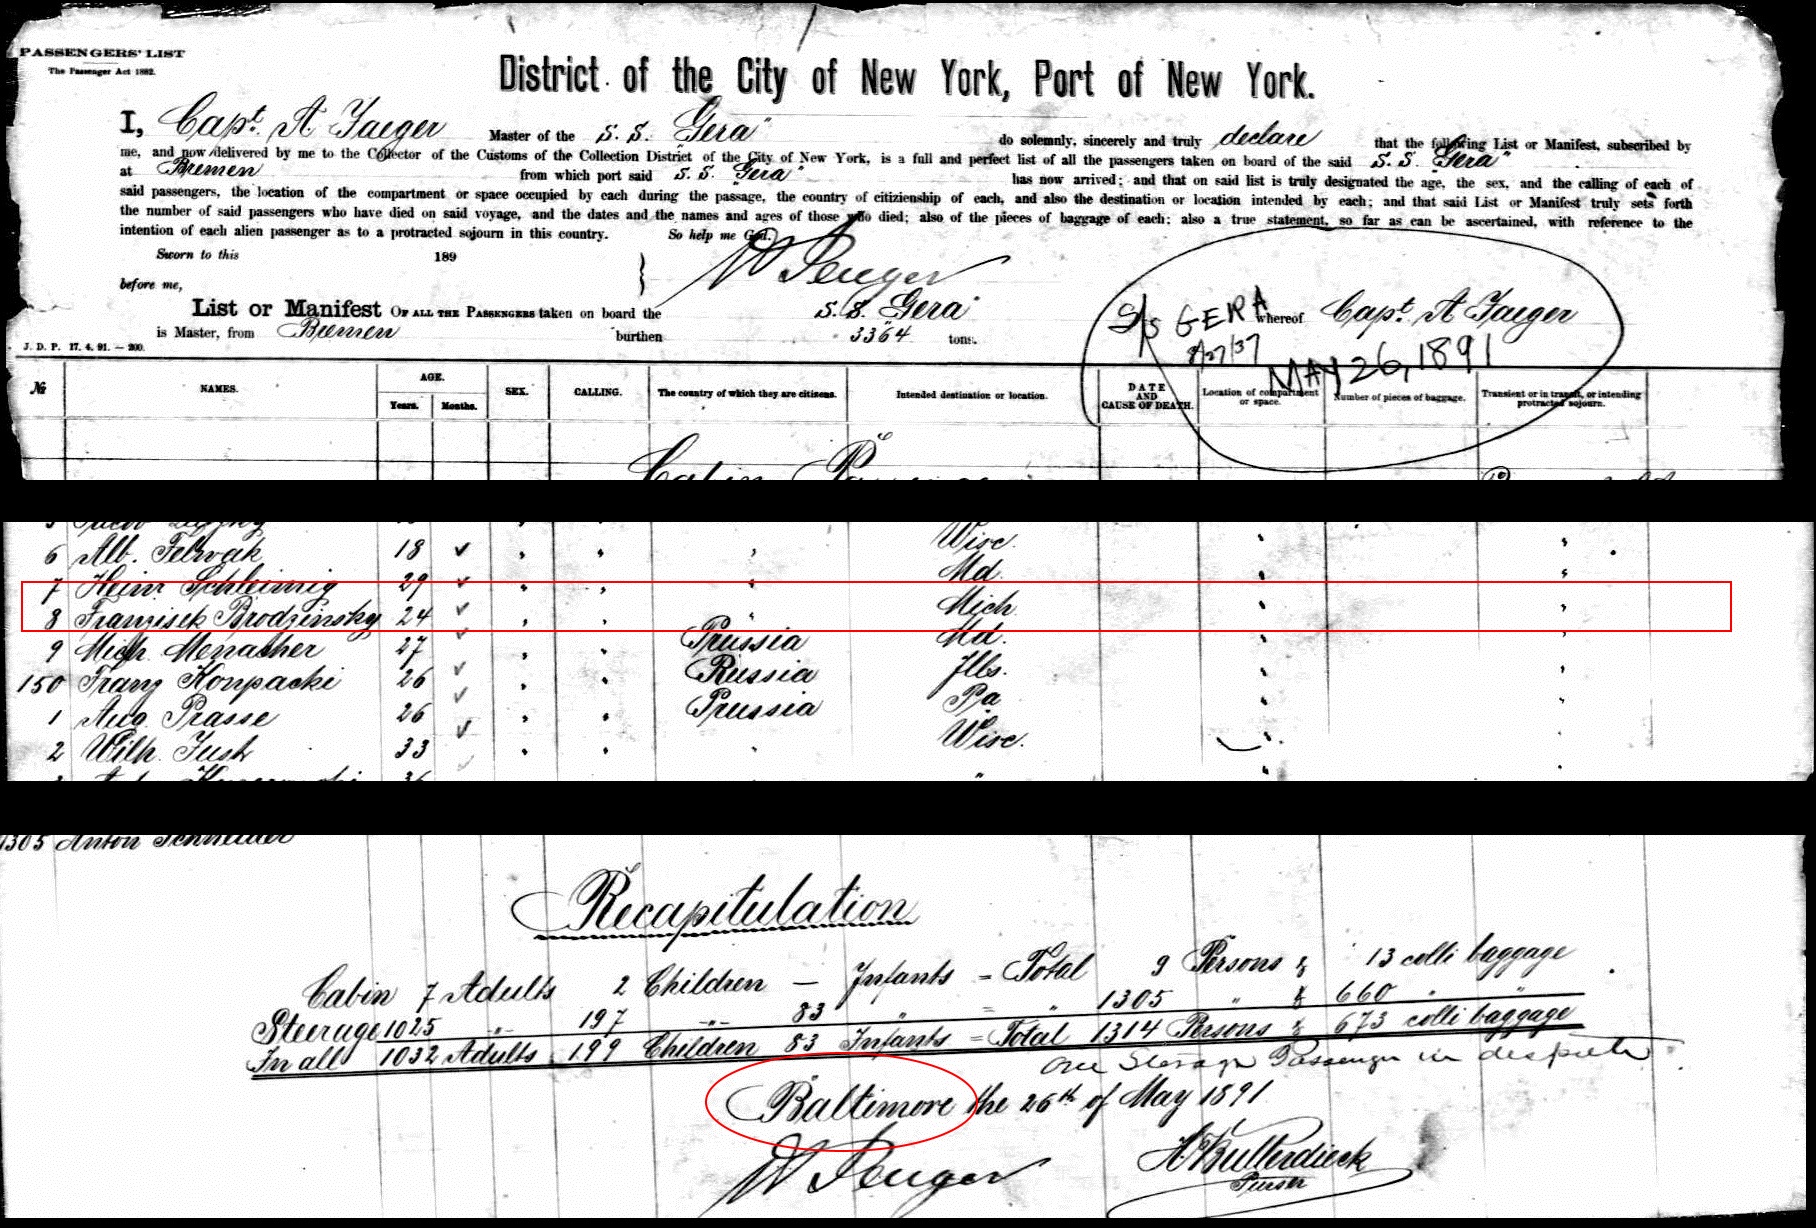 PASSENGERS' LIST
The Passenger Act 1882.
District of the City of New York, Port of New York.
I, Capt. A Jaeger Master of the S. S. "Gera" do solemnly, sincerely and truly declare that the following List or Manifest, subscribed by
me, and now delivered by me to the Collector of the Customs of the Collection District of the City of New York, is a full and perfect list of all the passengers taken on board of the said S. S. "Gera"
at Bremen from which port said S. S. "Gera" has now arrived; and that on said list is truly designated the age, the sex, and the calling of each of
said passengers, the location of the compartment or space occupied by each during the passage, the country of citizienship of each, and also the destination or location intended by each; and that said List or Manifest truly sets forth
the number of said passengers who have died on said voyage, and the dates and the names and ages of those who died; also of the pieces of baggage of each; also a true statement, so far as can be ascertained, with reference to the
intention of each alien passenger as to a protracted sojourn in this country. So help me God.
Sworn to this 189
before me,
List or Manifest OF ALL THE PASSENGERS taken on board the S. S. Gera" whereof Capt. A Jaeger
is Master, from Bremen burthen 3364 tons.
S/S GERA
8/27/37
MAY 26, 1891
J. D. P. 17. 4. 91. — 200.
№ NAMES. AGE. Years. Months. SEX. CALLING. The country of which they are citizens. Intended destination or location. DATE AND CAUSE OF DEATH. Location of compartment or space. Number of pieces of baggage. Transient or in transit, or intending protracted sojourn.
6 Alb. 18 Wisc.
7 Heinr Schleimig 29 Md.
8 Franzisek Brodzinsky 24 Mich
9 Mich. Menacher 27 Prussia Md.
150 Franz Konpacki 26 Russia Ills.
1 Aug. Prasse 26 Prussia Pa
2 Wilh. Just 33 Wisc.
1305 Anton Schneider
Recapitulation
Cabin 7 Adults 2 Children — Infants = Total 9 Persons & 13 colli baggage
Steerage 1025 " 197 " 83 " = " 1305 " & 660 " "
In all 1032 Adults 199 Children 83 Infants = Total 1314 Persons & 673 colli baggage
One Passenger in
Baltimore the 26th of May 1891
H Bullerdieck
Purser